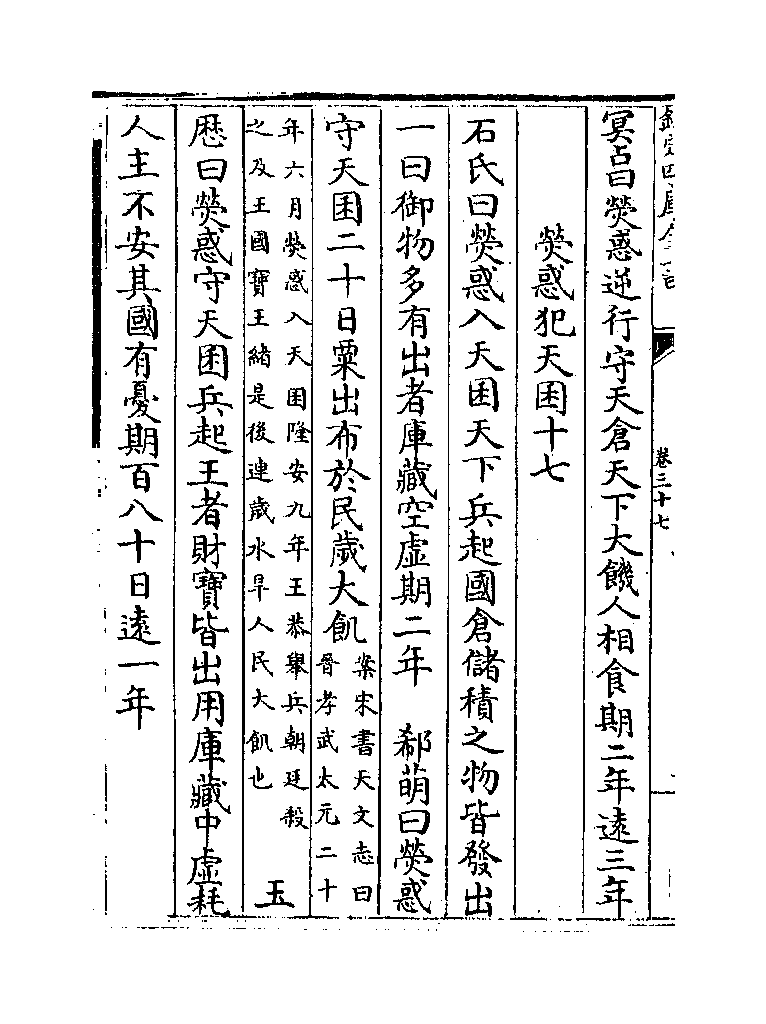 欽定四庫全書
卷三十七
冥占曰熒惑逆行守天倉天下大饑人相食期二年遠三年
熒惑犯天囷十七
石氏曰熒惑入天囷天下兵起國倉儲積之物皆發出
一曰御物多有出者庫藏空虛期二年　郗萌曰熒惑
守天囷二十日粟出布於民歲大飢
案宋書天文志曰
晉孝武太元二十
年六月熒惑入天囷隆安九年王恭舉兵朝廷殺
之及王國寶王緒是後連歲水旱人民大飢也
玉
歴曰熒惑守天囷兵起王者財寶皆出用庫藏中虛耗
人主不安其國有憂期百八十日遠一年